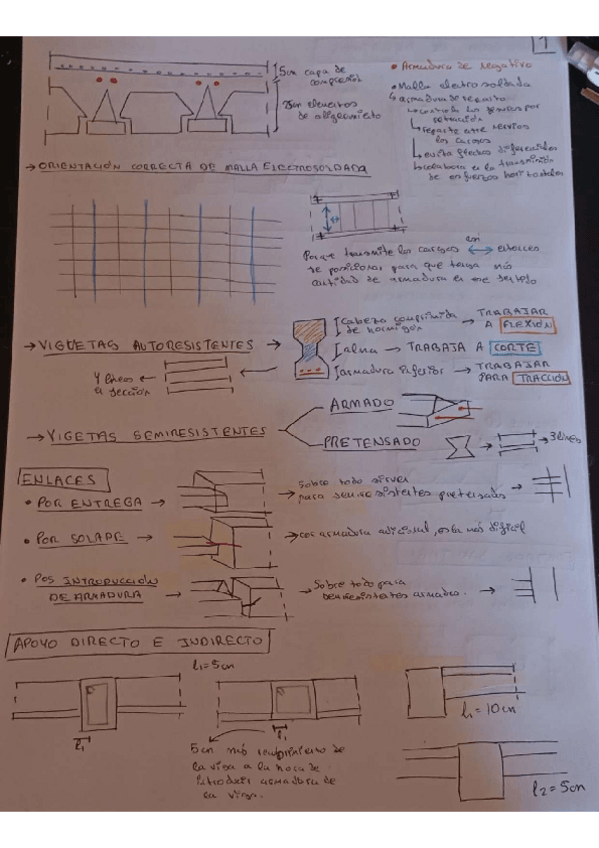 1
5cm capa de
compresión
25cm elementos
de aligeramiento
• Armadura de negativo
• Malla electrosoldada
↳ armadura de reparto
↳ controla las fisuras por
retracción
↳ reparte entre nervios
las cargas
↳ evita efectos diferenciales
↳ colabora en la transmisión
de esfuerzos horizontales
→ ORIENTACIÓN CORRECTA DE MALLA ELECTROSOLDADA
Porque transmite las cargas así ↔ entonces
se posiciona para que tenga más
cantidad de armadura en ese sentido
→ VIGUETAS AUTORESISTENTES →
Cabeza comprimida
de hormigón → TRABAJAR
A FLEXIÓN
alma → TRABAJA A CORTE
armadura inferior → TRABAJAR
PARA TRACCIÓN
4 líneas ←
en sección
→ VIGETAS SEMIRESISTENTES
ARMADO
PRETENSADO → → 3 líneas
ENLACES
• POR ENTREGA → → Sobre todo sirven
para semiresistentes pretensados →
• POR SOLAPE → → con armadura adicional, esta más difícil
• POS INTRODUCCIÓN
DE ARMADURA → → Sobre todo para
semiresistentes armados. →
APOYO DIRECTO E INDIRECTO
l₁=5cm
l₁
l₁
5cm más recubrimiento de
la viga a la hora de
introducir armadura de
la viga.
l₁=10cm
l₂=5cm